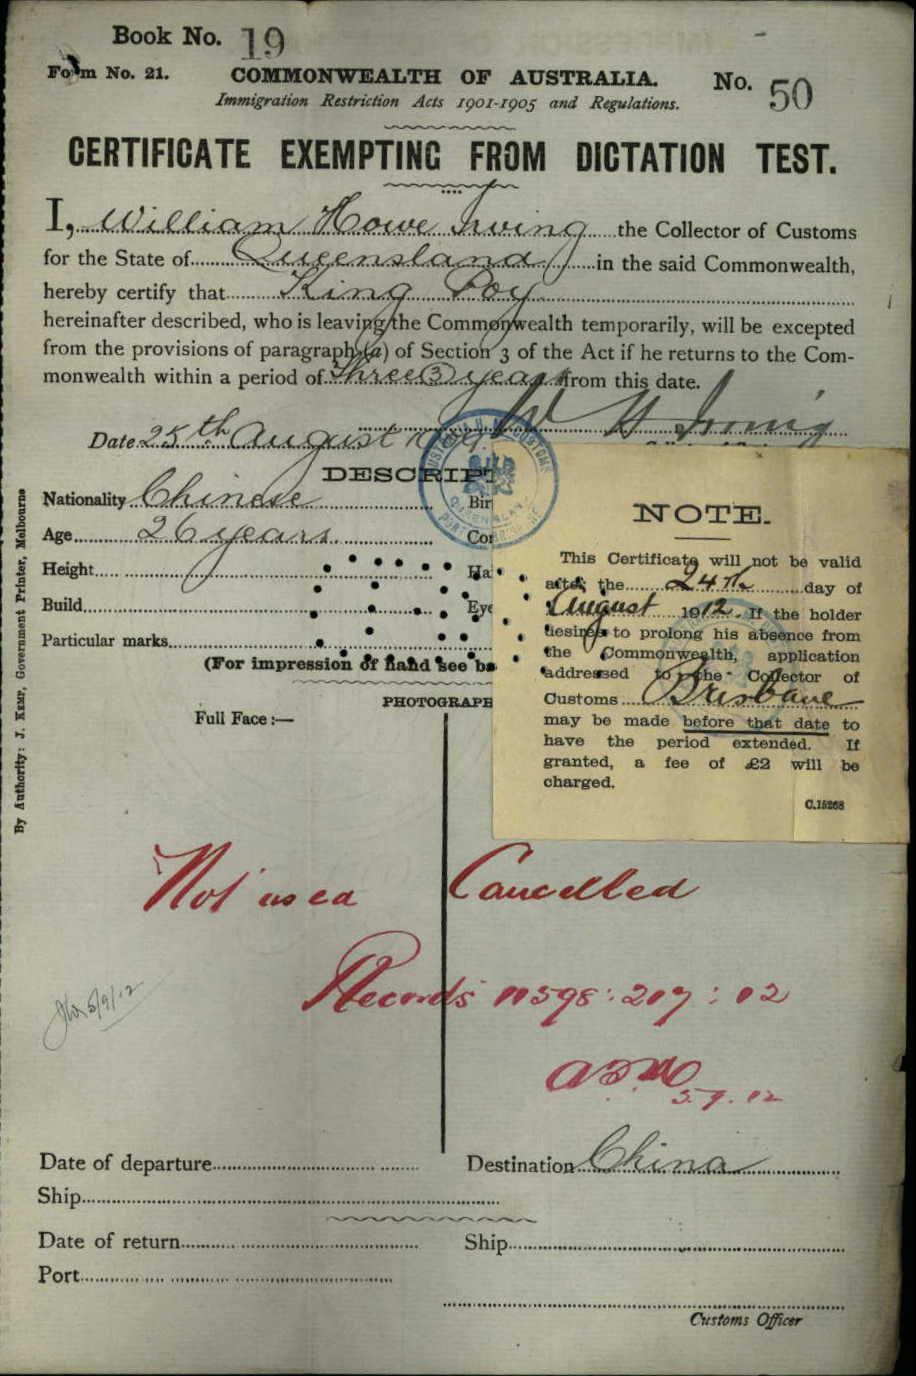 Book No. 19
Form No. 21.
COMMONWEALTH OF AUSTRALIA.
No. 50
Immigration Restriction Acts 1901-1905 and Regulations.
CERTIFICATE EXEMPTING FROM DICTATION TEST.
I, William Howe Irving the Collector of Customs
for the State of Queensland in the said Commonwealth,
hereby certify that King Poy
hereinafter described, who is leaving the Commonwealth temporarily, will be excepted
from the provisions of paragraph (a) of Section 3 of the Act if he returns to the Com-
monwealth within a period of three (3) years from this date.
W H Irving
Date 25th August
DESCRIPT
Nationality Chinese
Age 26 years
Height
Build
Particular marks
(For impression of hand see ba
Bir
Co
Hai
Eye
PHOTOGRAPH
Full Face:—
NOTE.
This Certificate will not be valid
after the 24th day of
August 1912. If the holder
desires to prolong his absence from
the Commonwealth, application
addressed to the Collector of
Customs Brisbane
may be made before that date to
have the period extended. If
granted, a fee of £2 will be
charged.
C.15268
Not used Cancelled
Records 11598:207:12
5/9/12
5.9.12
Date of departure
Destination China
Ship
Date of return
Ship
Port
Customs Officer
By Authority: J. KEMP, Government Printer, Melbourne